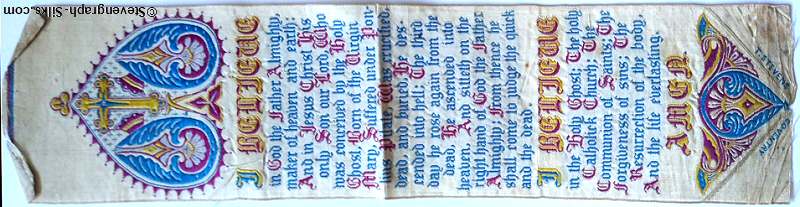 I BELIEVE
in God the Father Almighty,
maker of heaven and earth;
And in Jesus Christ His
only Son our Lord Who
was conceived by the Holy
Ghost, Born of the Virgin
Mary, Suffered under Pon-
tius Pilate Was crucified
dead, and buried He des-
cended into hell; The third
day he rose again from the
dead, He ascended into
heaven, And sitteth on the
right hand of God the Father
Almighty; From thence he
shall come to judge the quick
and the dead
I BELIEVE
in the Holy Ghost; The holy
Catholick Church; The
Communion of Saints; The
Forgiveness of sins; The
Resurrection of the body,
And the life everlasting.
AMEN.
COVENTRY
©Stevengraph-Silks.com